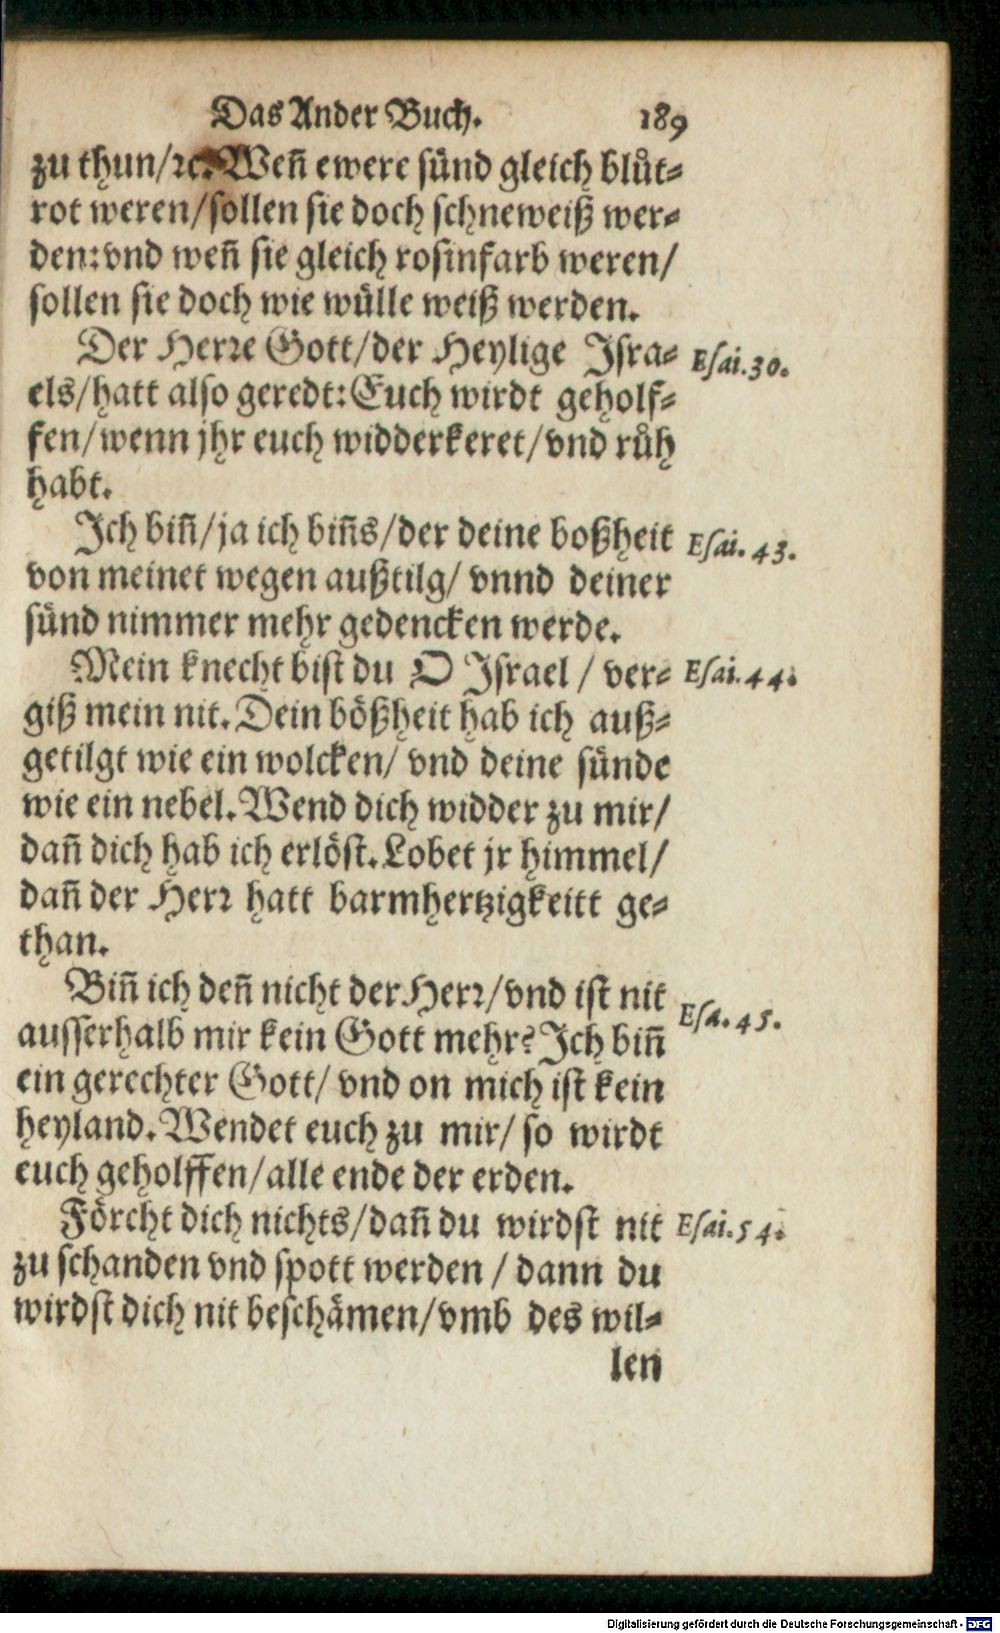 Das Ander Buch. 189
zu thun/ꝛc. Wen̄ ewere sünd gleich blůt⸗
rot weren/sollen sie doch schneweiß wer⸗
den:vnd wen̄ sie gleich rosinfarb weren/
sollen sie doch wie wülle weiß werden.
Der Herꝛe Gott/der Heylige Isra⸗ Esai.30.
els/hatt also geredt:Euch wirdt geholf⸗
fen/wenn jhr euch widderkeret/vnd růh
habt.
Ich bin̄/ja ich bin̄s/der deine boßheit Esai. 43.
von meinet wegen außtilg/ vnnd deiner
sünd nimmer mehr gedencken werde.
Mein knecht bist du O Israel / ver⸗ Esai.44.
giß mein nit. Dein bößheit hab ich auß⸗
getilgt wie ein wolcken/ vnd deine sünde
wie ein nebel. Wend dich widder zu mir/
dan̄ dich hab ich erlöst. Lobet jr himmel/
dan̄ der Herꝛ hatt barmhertzigkeitt ge⸗
than.
Bin̄ ich den̄ nicht der Herꝛ/vnd ist nit Esa. 45.
ausserhalb mir kein Gott mehr? Ich bin̄
ein gerechter Gott/ vnd on mich ist kein
heyland. Wendet euch zu mir/ so wirdt
euch geholffen/alle ende der erden.
Förcht dich nichts/dan̄ du wirdst nit Esai.54.
zu schanden vnd spott werden / dann du
wirdst dich nit beschämen/vmb des wil⸗
len
Digitalisierung gefördert durch die Deutsche Forschungsgemeinschaft - DFG